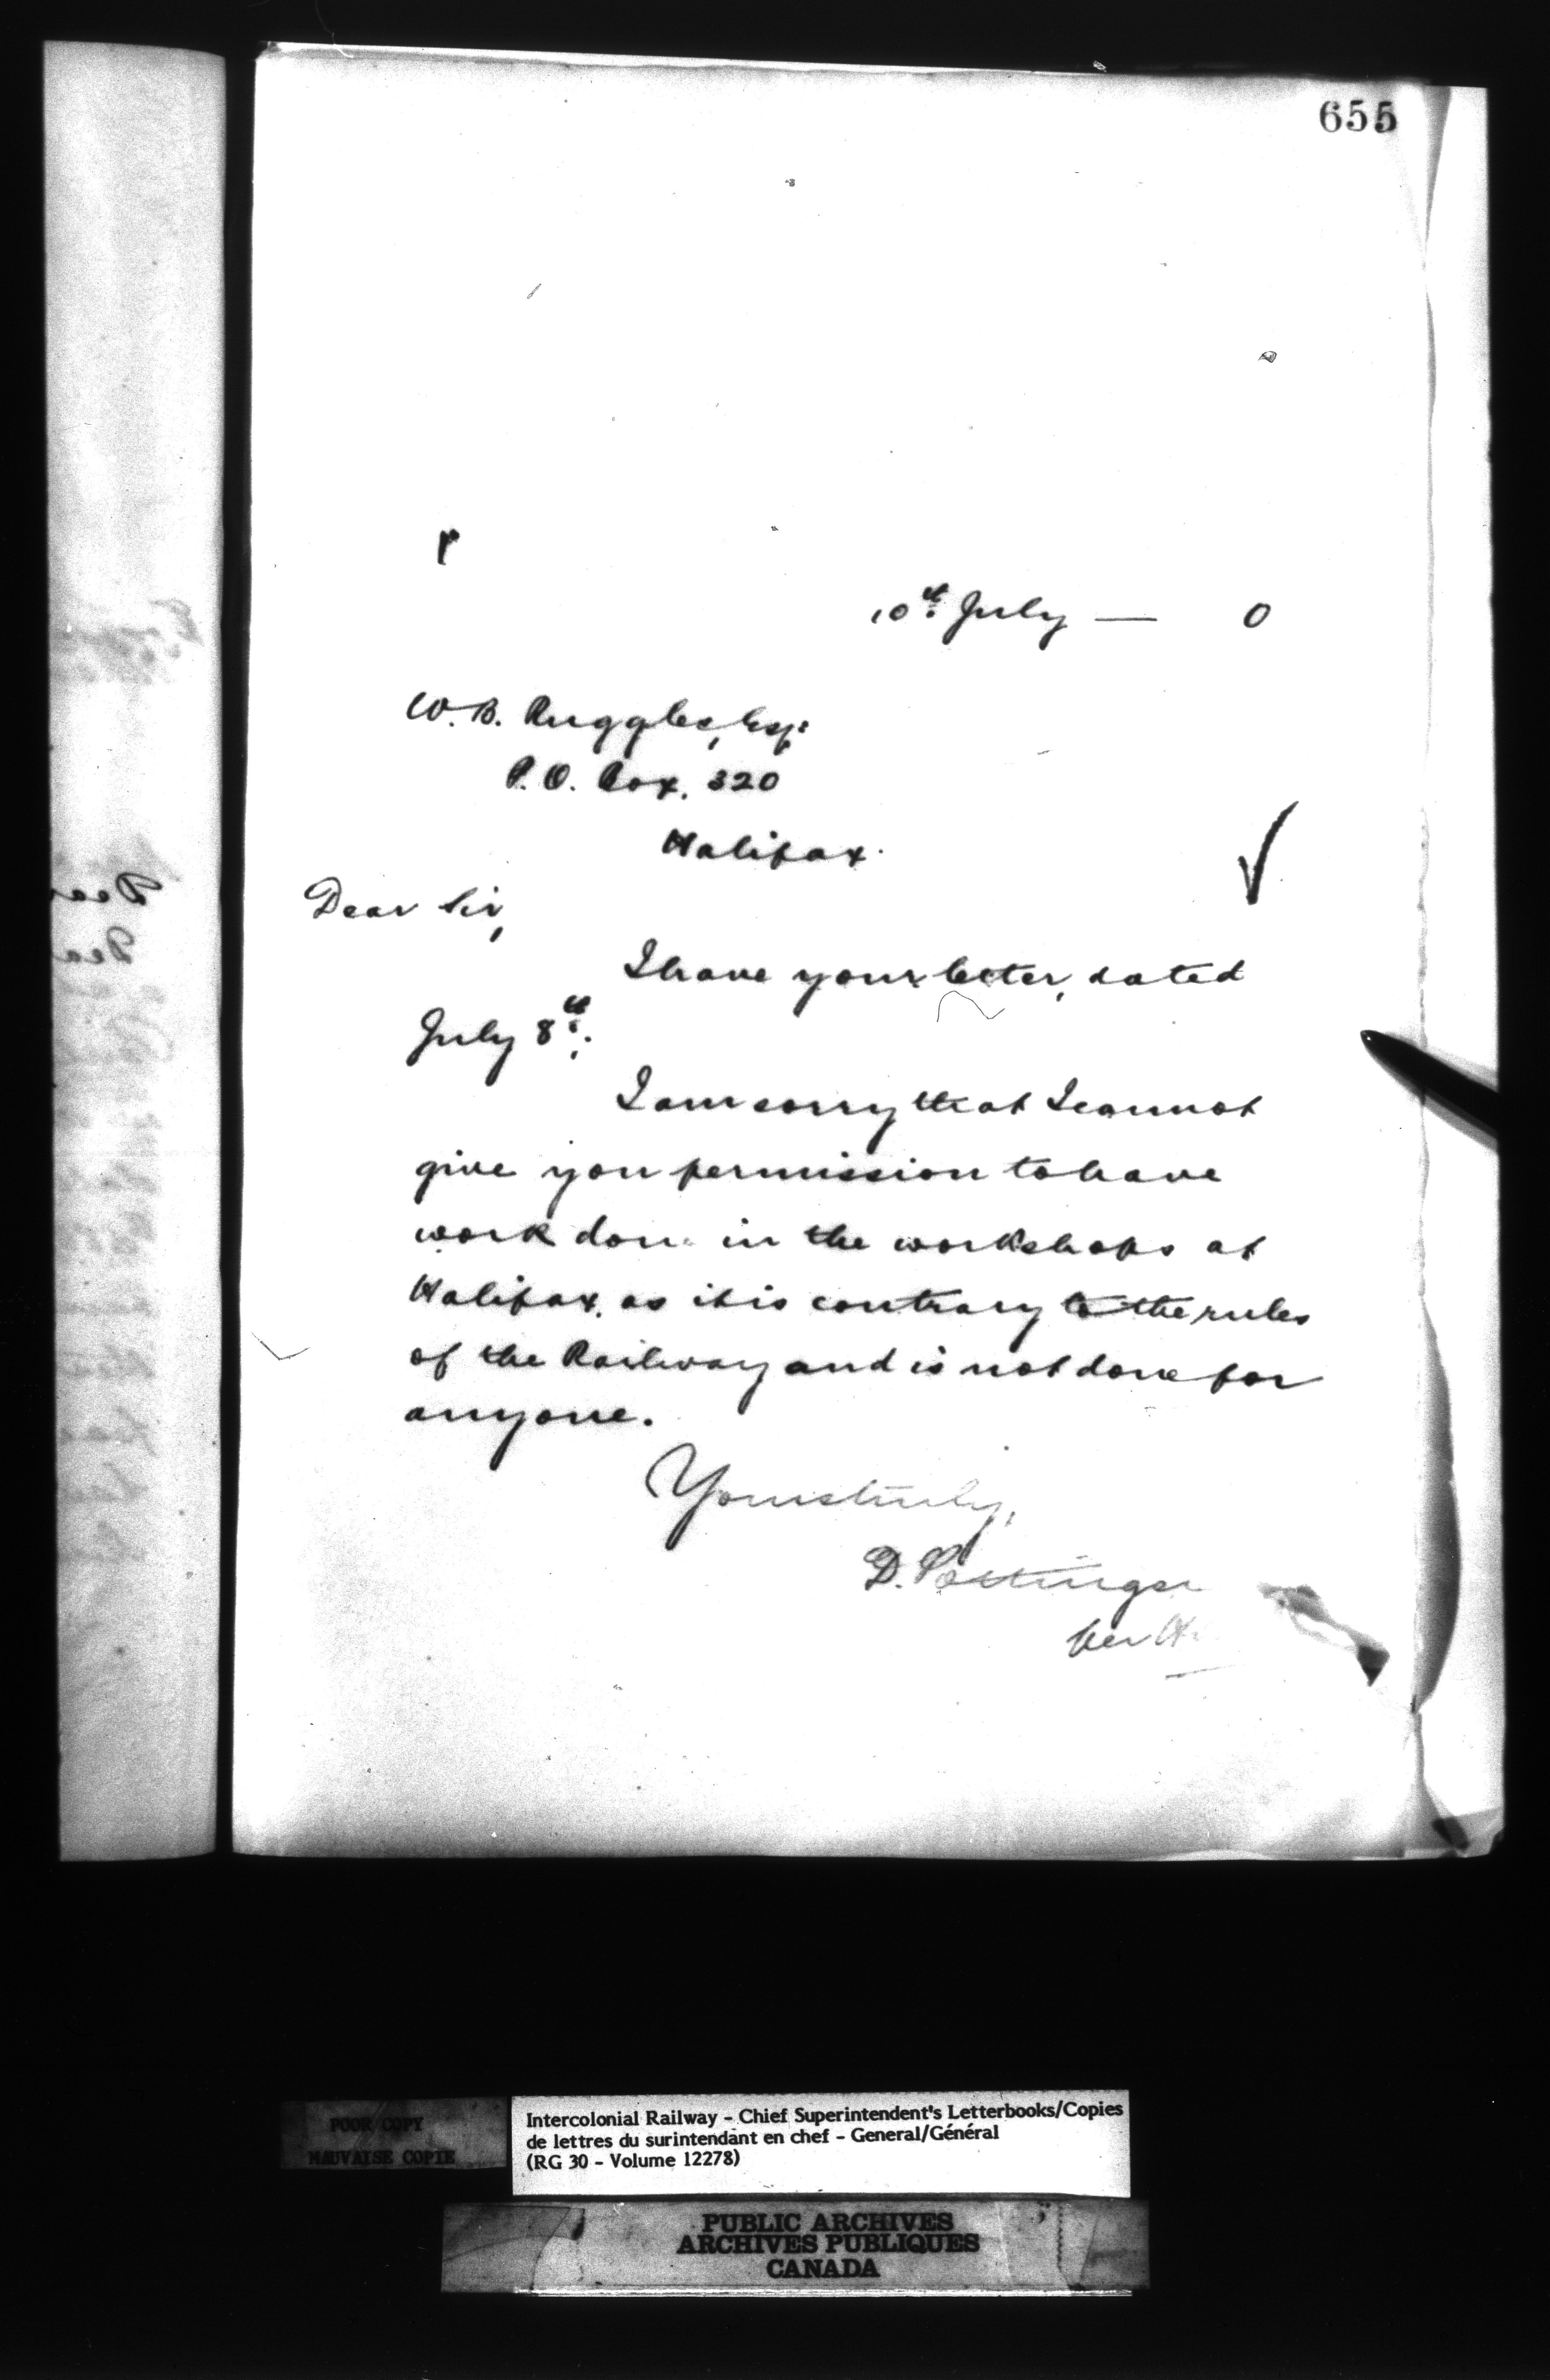 655
r
10th July — 0
W. B. Ruggles, Esq:
P. O. Box, 320
Halifax.
Dear Sir,
I have your letter, dated
July 8th.
I am sorry that I cannot
give you permission to have
work done in the workshops at
Halifax, as it is contrary to the rules
of the Railway and is not done for
anyone.
Yours truly,
D. Pottinger
POOR COPY
MAUVAISE COPIE
Intercolonial Railway - Chief Superintendent's Letterbooks/Copies
de lettres du surintendant en chef - General/Général
(RG 30 - Volume 12278)
PUBLIC ARCHIVES
ARCHIVES PUBLIQUES
CANADA